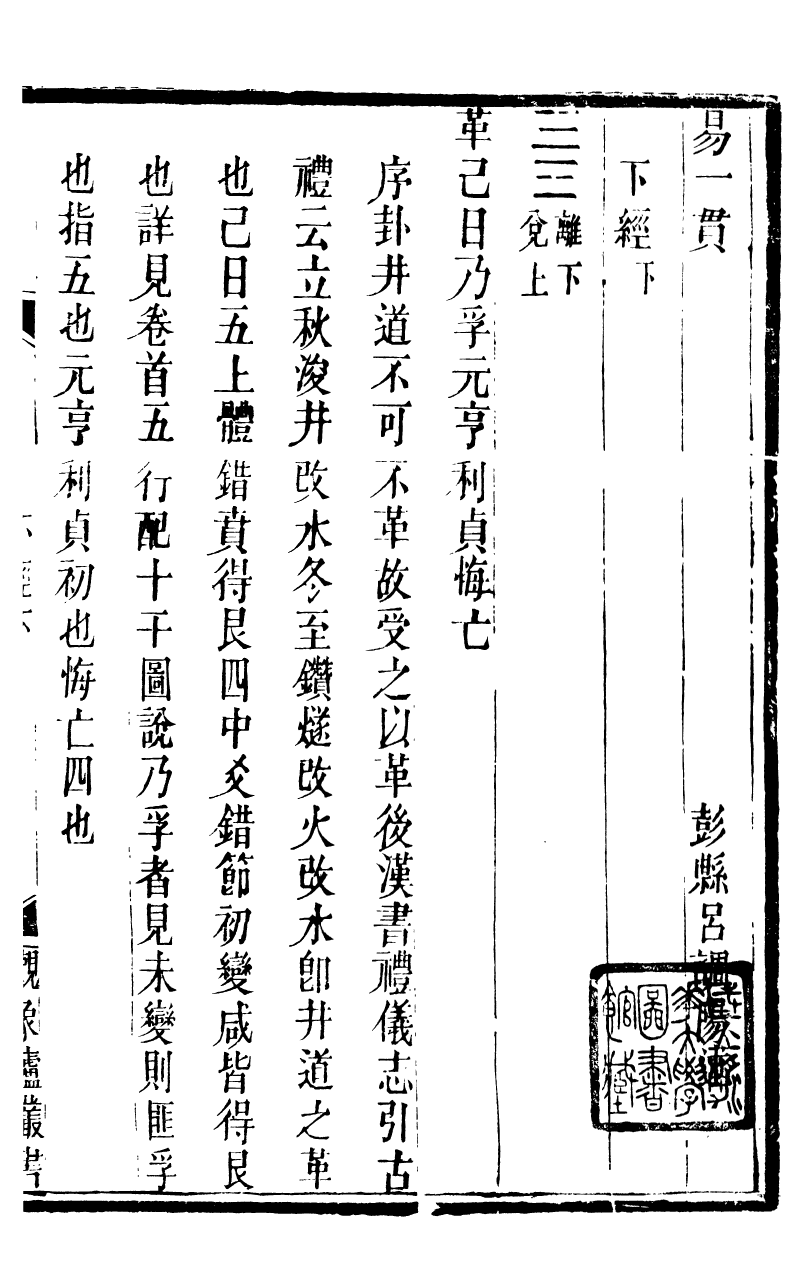 易一貫
彭縣呂調陽
下經下
離下
兌上
革己日乃孚元亨利貞悔亡
序卦井道不可不革故受之以革後漢書禮儀志引古
禮云立秋浚井改水冬至鑽燧改火改水卽井道之革
也己日五上體錯賁得艮四中爻錯節初變咸皆得艮
也詳見卷首五行配十干圖說乃孚者見未變則匪孚
也指五也元亨利貞初也悔亡四也
下經下
觀象廬叢書